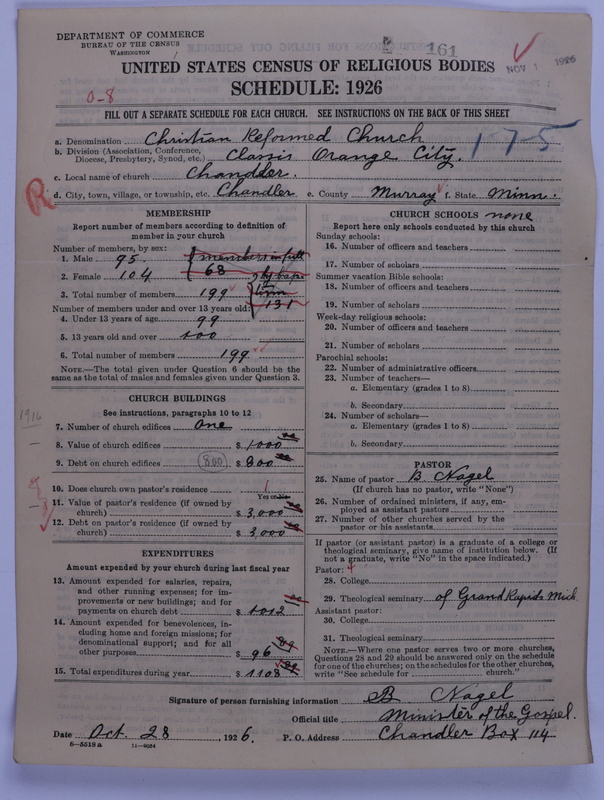 DEPARTMENT OF COMMERCE
BUREAU OF THE CENSUS
WASHINGTON
161
NOV 1 1926
UNITED STATES CENSUS OF RELIGIOUS BODIES
SCHEDULE: 1926
0-8
FILL OUT A SEPARATE SCHEDULE FOR EACH CHURCH. SEE INSTRUCTIONS ON THE BACK OF THIS SHEET
a. Denomination Christian Reformed Church
175
b. Division (Association, Conference, Diocese, Presbytery, Synod, etc.) Classis Orange City.
c. Local name of church Chandler.
R
d. City, town, village, or township, etc. Chandler e. County Murray f. State Minn.
MEMBERSHIP
Report number of members according to definition of
member in your church
Number of members, by sex:
1. Male 95.
members in full
2. Female 104
68
by bap
3. Total number of members 199
tism
131
Number of members under and over 13 years old:
4. Under 13 years of age 99
5. 13 years old and over 100
6. Total number of members 199
NOTE.—The total given under Question 6 should be
same as the total of males and females given under Question 3.
CHURCH BUILDINGS
See instructions, paragraphs 10 to 12
1916
7. Number of church edifices one
8. Value of church edifices $ 1000
9. Debt on church edifices 800 $ 800
10. Does church own pastor's residence 1
Yes or No
11. Value of pastor's residence (if owned by
church) $ 3,000
12. Debt on pastor's residence (if owned by
church) $ 3,000
EXPENDITURES
Amount expended by your church during last fiscal year
13. Amount expended for salaries, repairs,
and other running expenses; for im-
provements or new buildings; and for
payments on church debt $ 1012
14. Amount expended for benevolences, in-
cluding home and foreign missions; for
denominational support; and for all
other purposes $ 96
15. Total expenditures during year $ 1108
CHURCH SCHOOLS none
Report here only schools conducted by this church
Sunday schools:
16. Number of officers and teachers
17. Number of scholars
Summer vacation Bible schools:
18. Number of officers and teachers
19. Number of scholars
Week-day religious schools:
20. Number of officers and teachers
21. Number of scholars
Parochial schools:
22. Number of administrative officers
23. Number of teachers—
a. Elementary (grades 1 to 8)
b. Secondary
24. Number of scholars—
a. Elementary (grades 1 to 8)
b. Secondary
PASTOR
25. Name of pastor B Nagel
(If church has no pastor, write "None")
26. Number of ordained ministers, if any, em-
ployed as assistant pastors
27. Number of other churches served by the
pastor or his assistants
If pastor (or assistant pastor) is a graduate of a college or
theological seminary, give name of institution below. (If
not a graduate, write "No" in the space indicated.)
Pastor: 4
28. College
29. Theological seminary of Grand Rapids Mich
Assistant pastor:
30. College
31. Theological seminary
NOTE.—Where one pastor serves two or more churches,
Questions 28 and 29 should be answered only on the schedule
for one of the churches; on the schedules for the other churches,
write "See schedule for church."
Signature of person furnishing information B Nagel
Official title Minister of the Gospel.
Date Oct. 28, 1926. P. O. Address Chandler Box 114
8—5518 a 11—9024